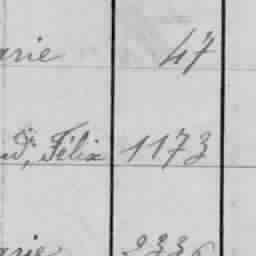 arie 47
d, Félix 1173
arie 2336